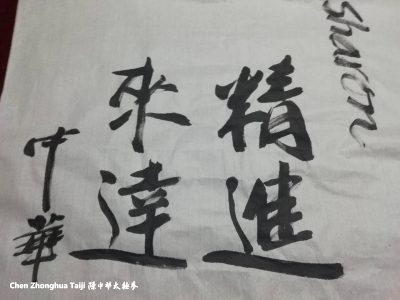 Sharon
精進
來達
中華
Chen Zhonghua Taiji 陳中華太極拳